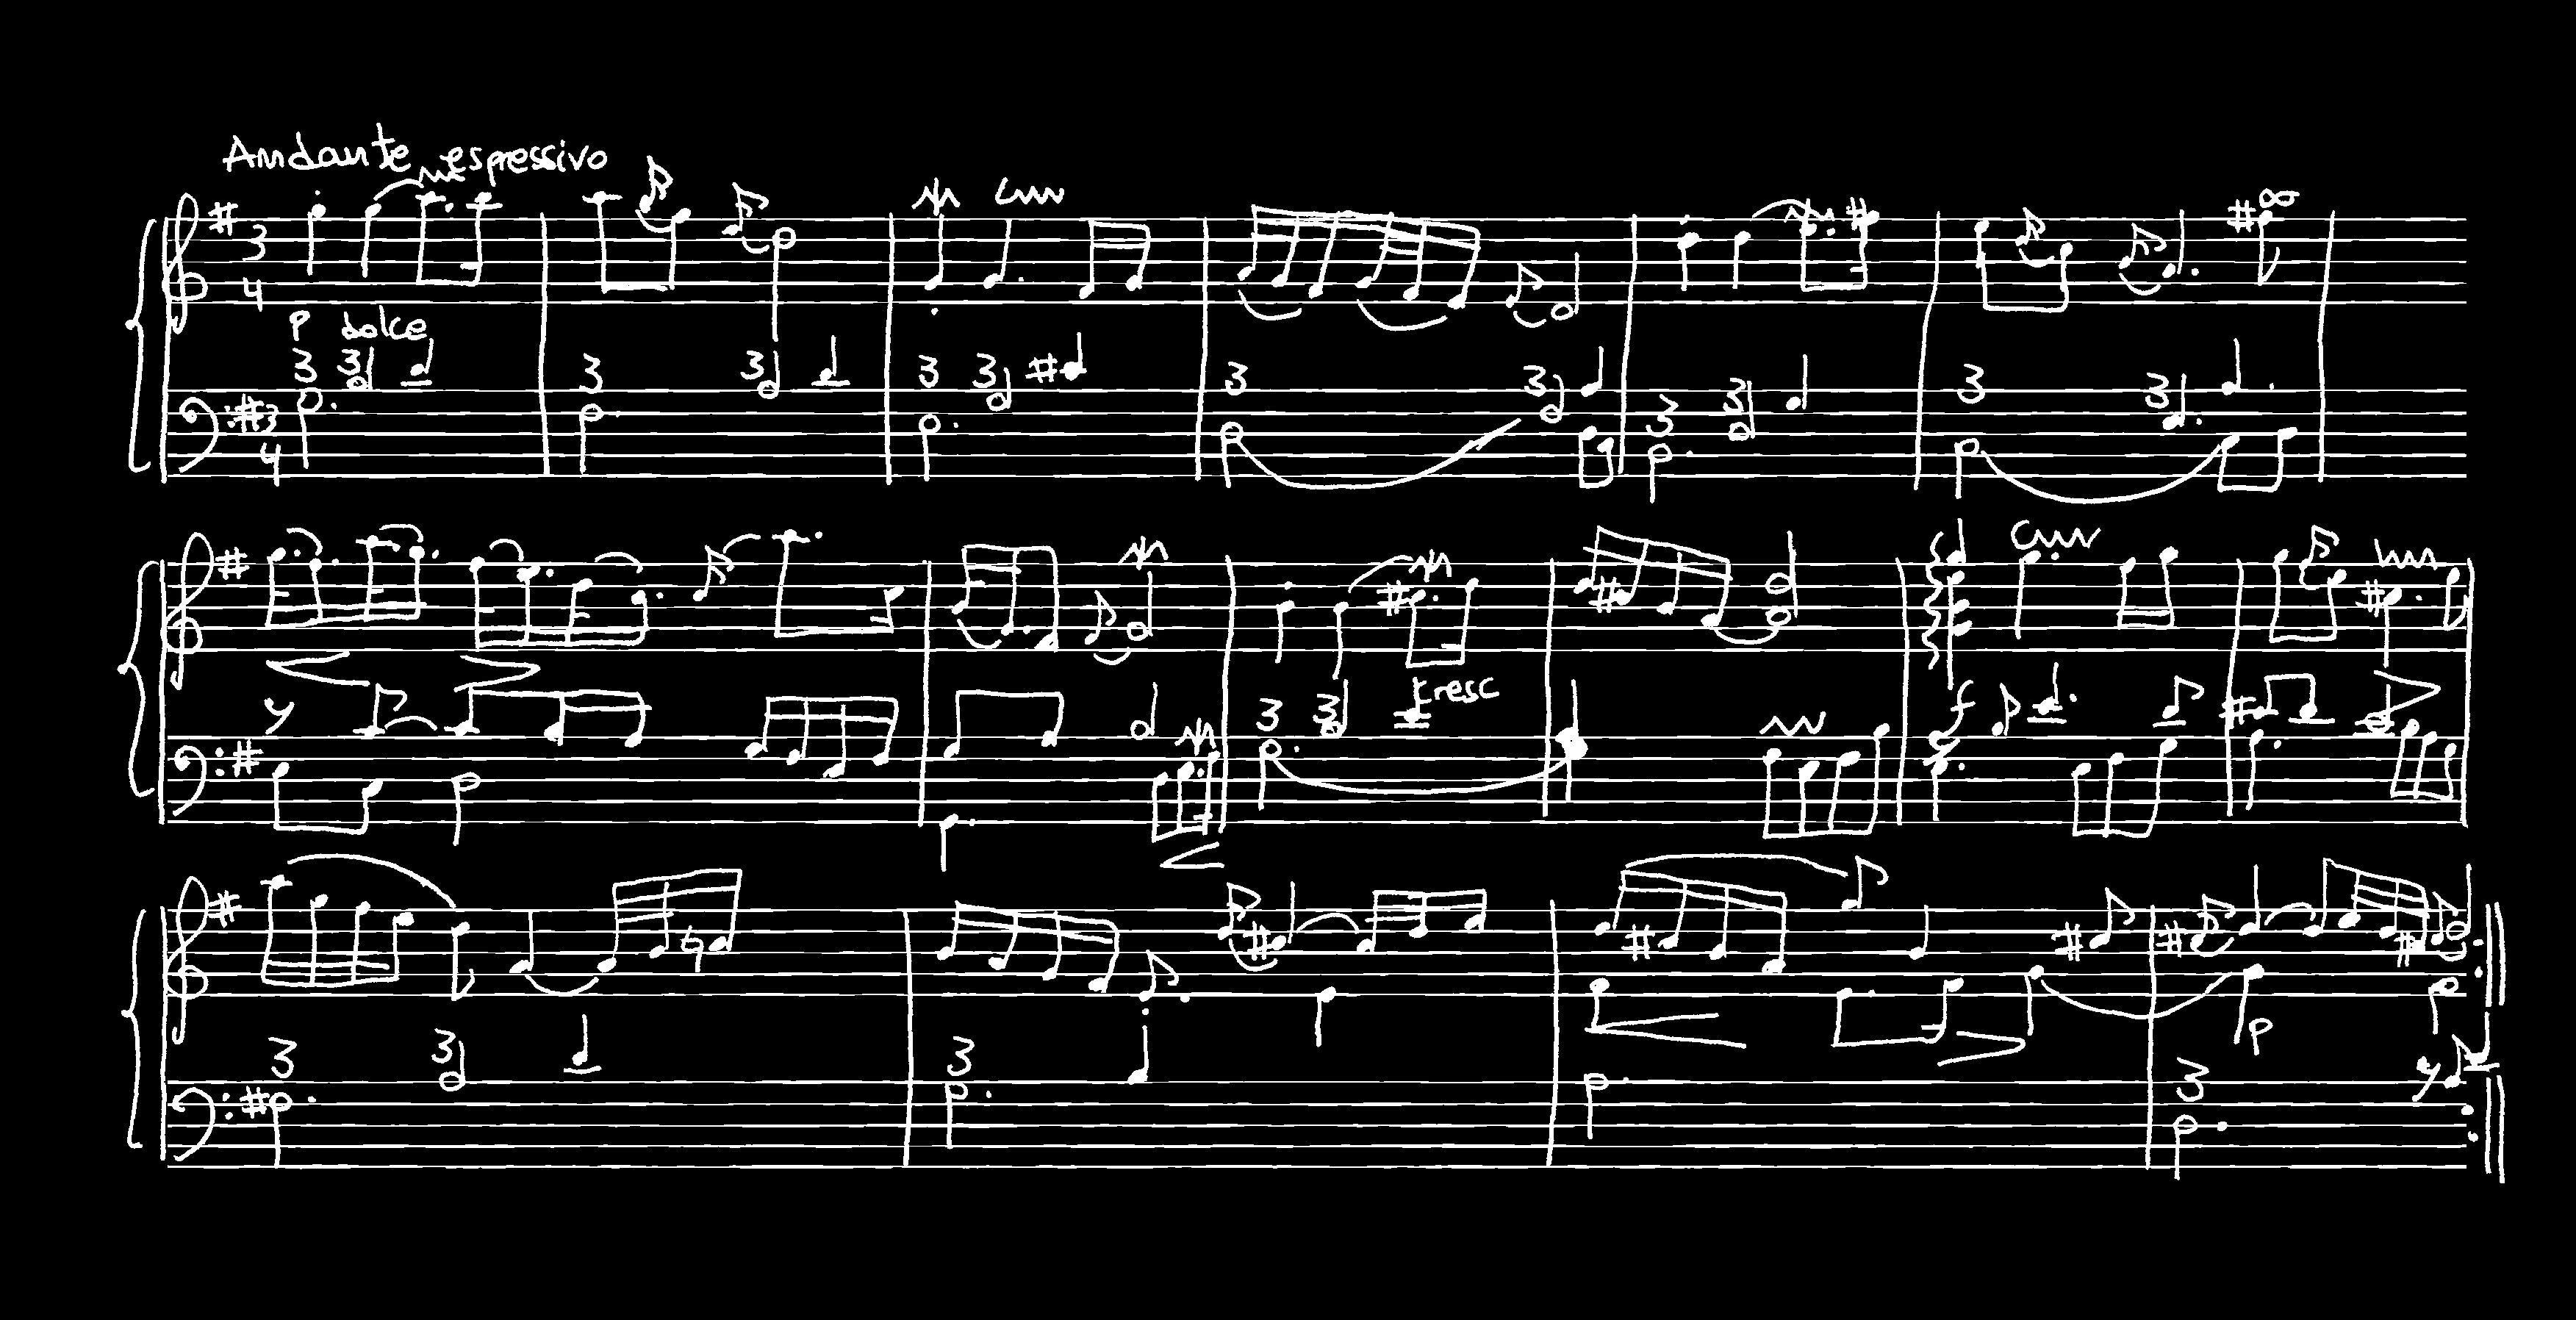 Andante espressivo
3
4
p dolce
3
4
cresc
f
p